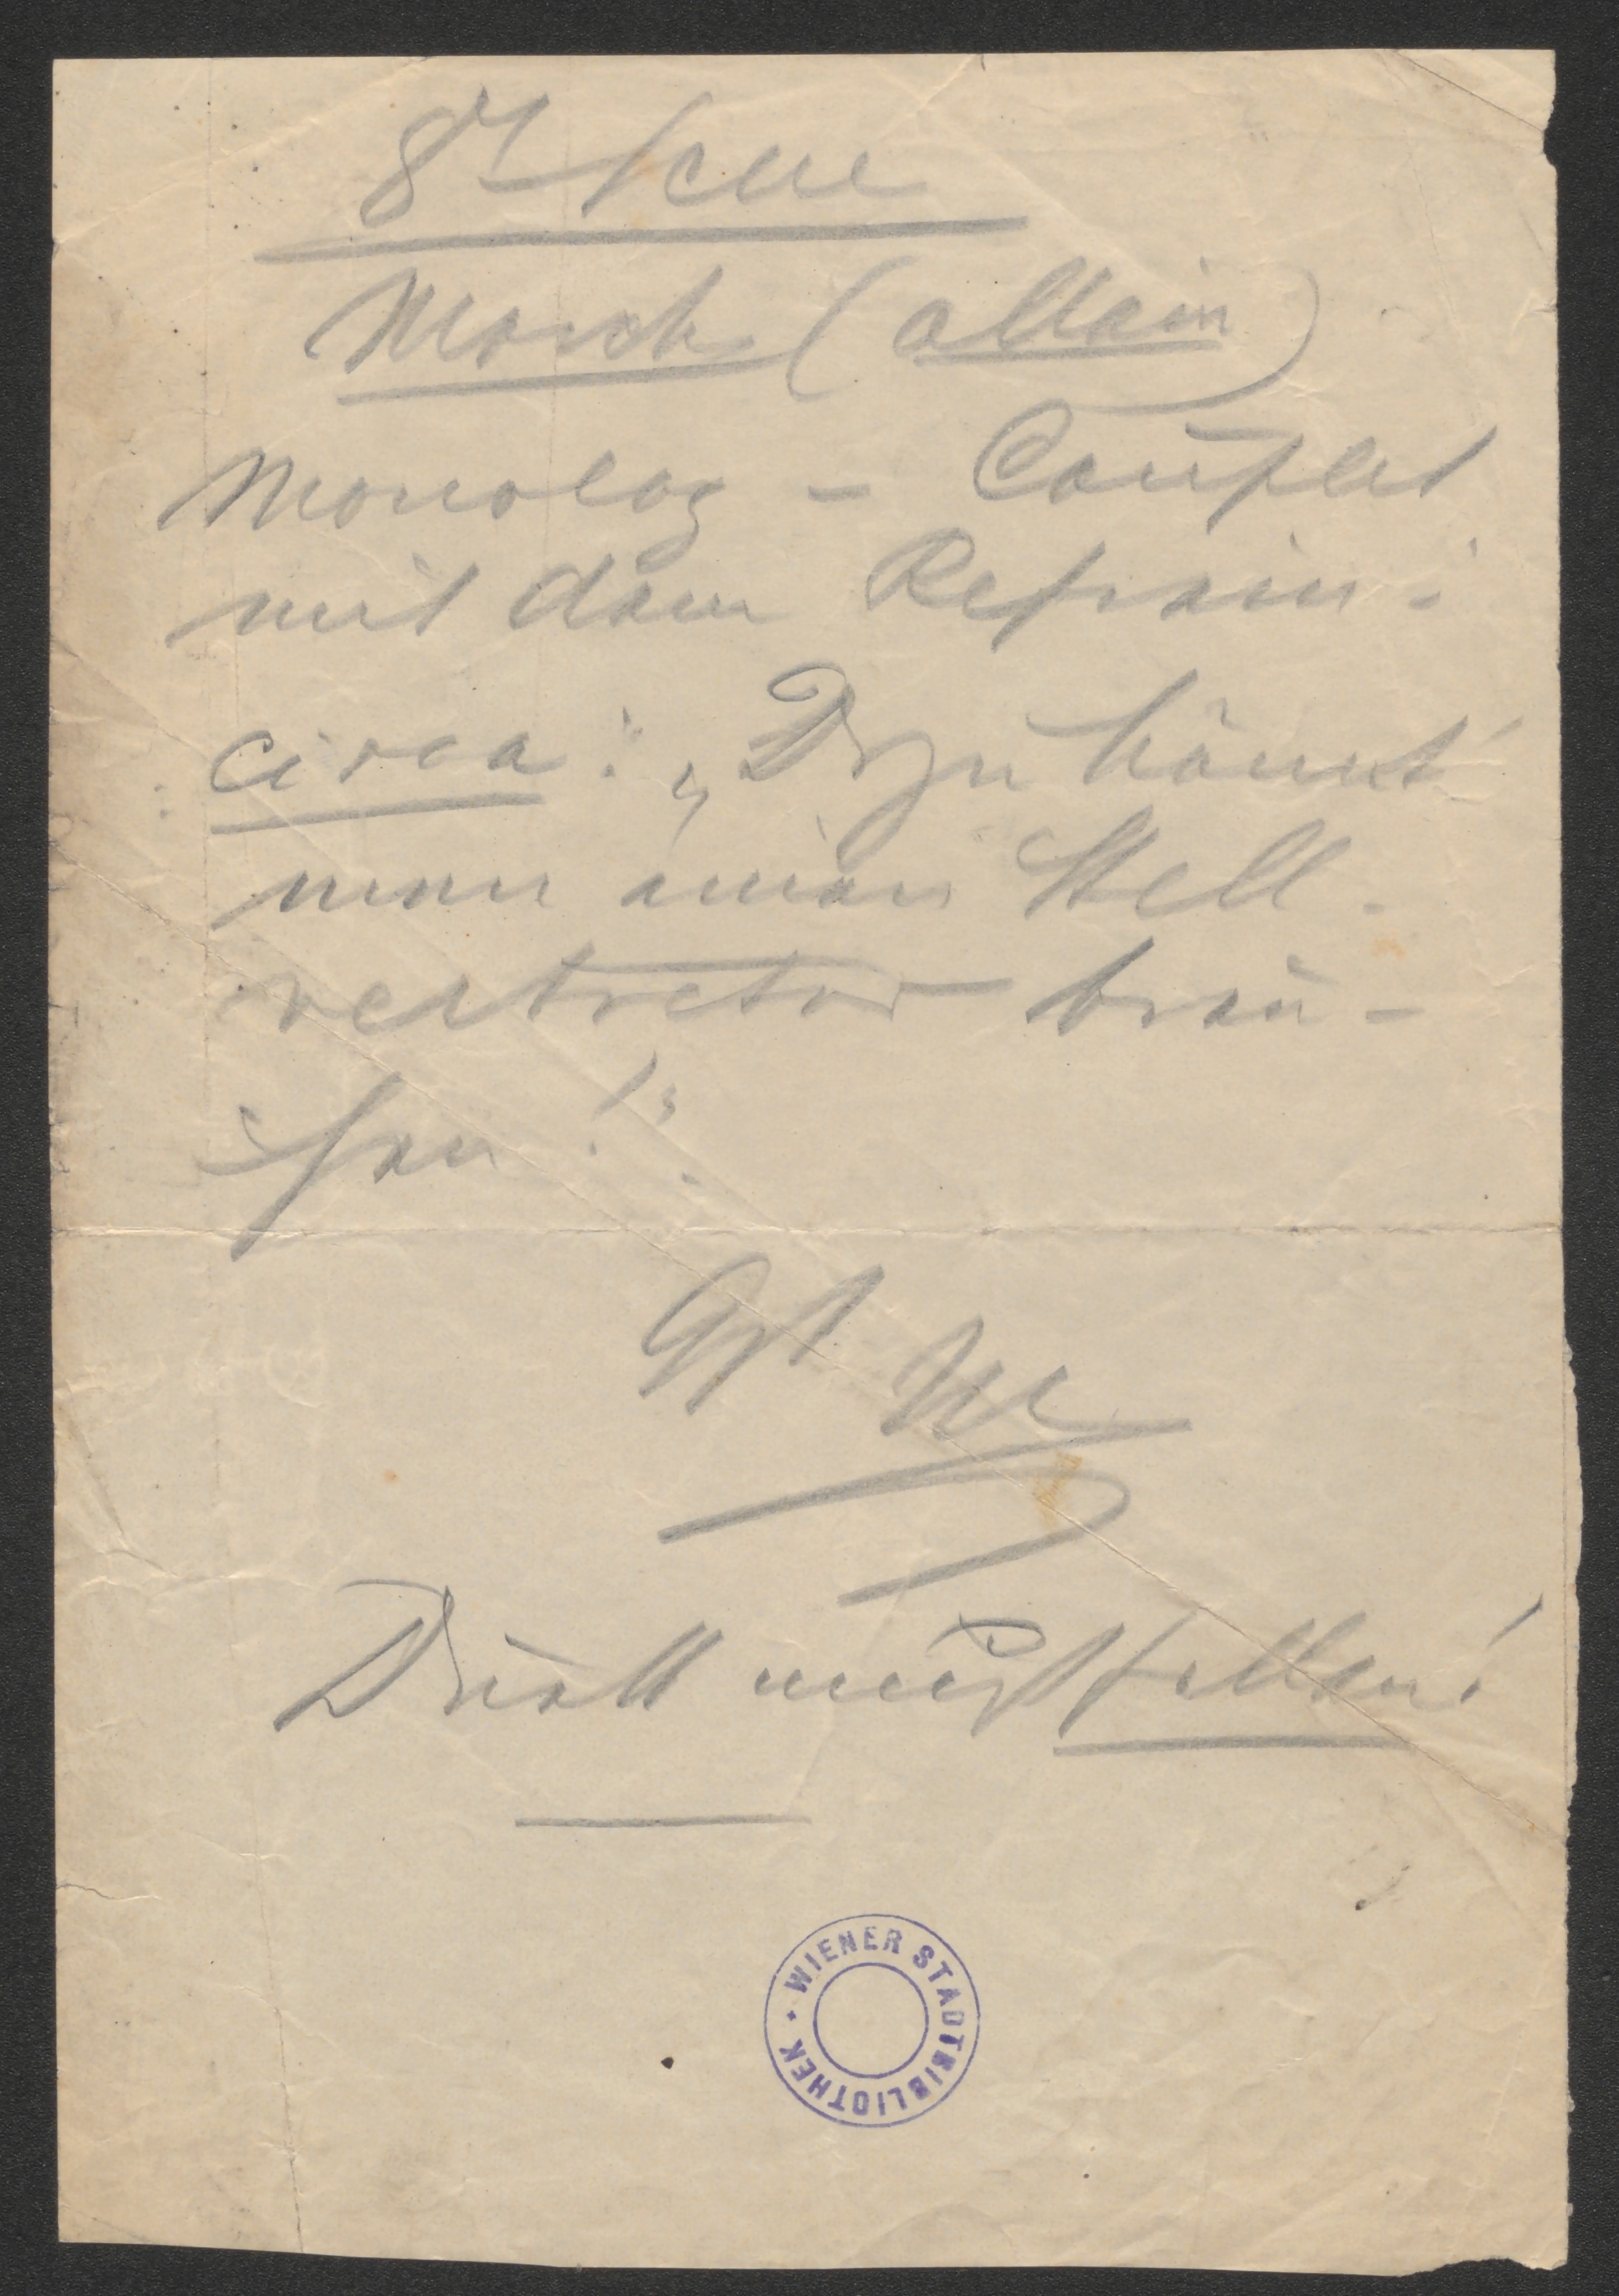 8te Scene
Marok (allein)
Monolog - Couplet
mit dem Refrain:
circa: „Dazu könnt'
man einen Stell-
vertreter brau-
chen!"
Duett mußt fallen!
WIENER STADTBIBLIOTHEK